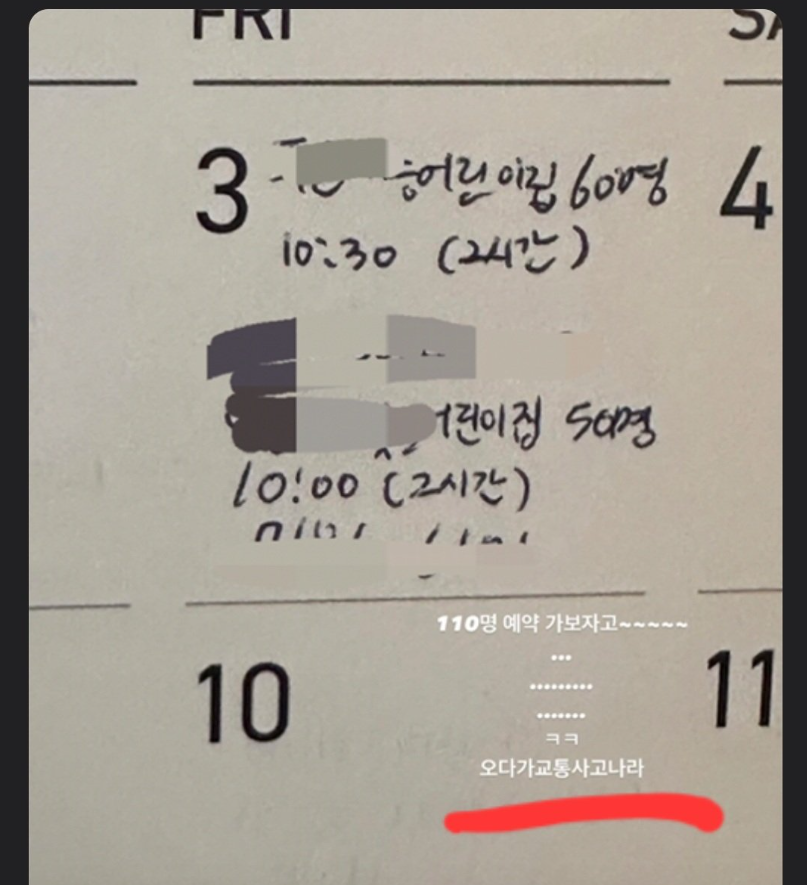 FRI
3 어린이집 60명 4
10:30 (2시간)
어린이집 50명
10:00 (2시간)
110명 예약 가보자고~~~~~
...
.........
.......
10 11
ㅋㅋ
오다가교통사고나라